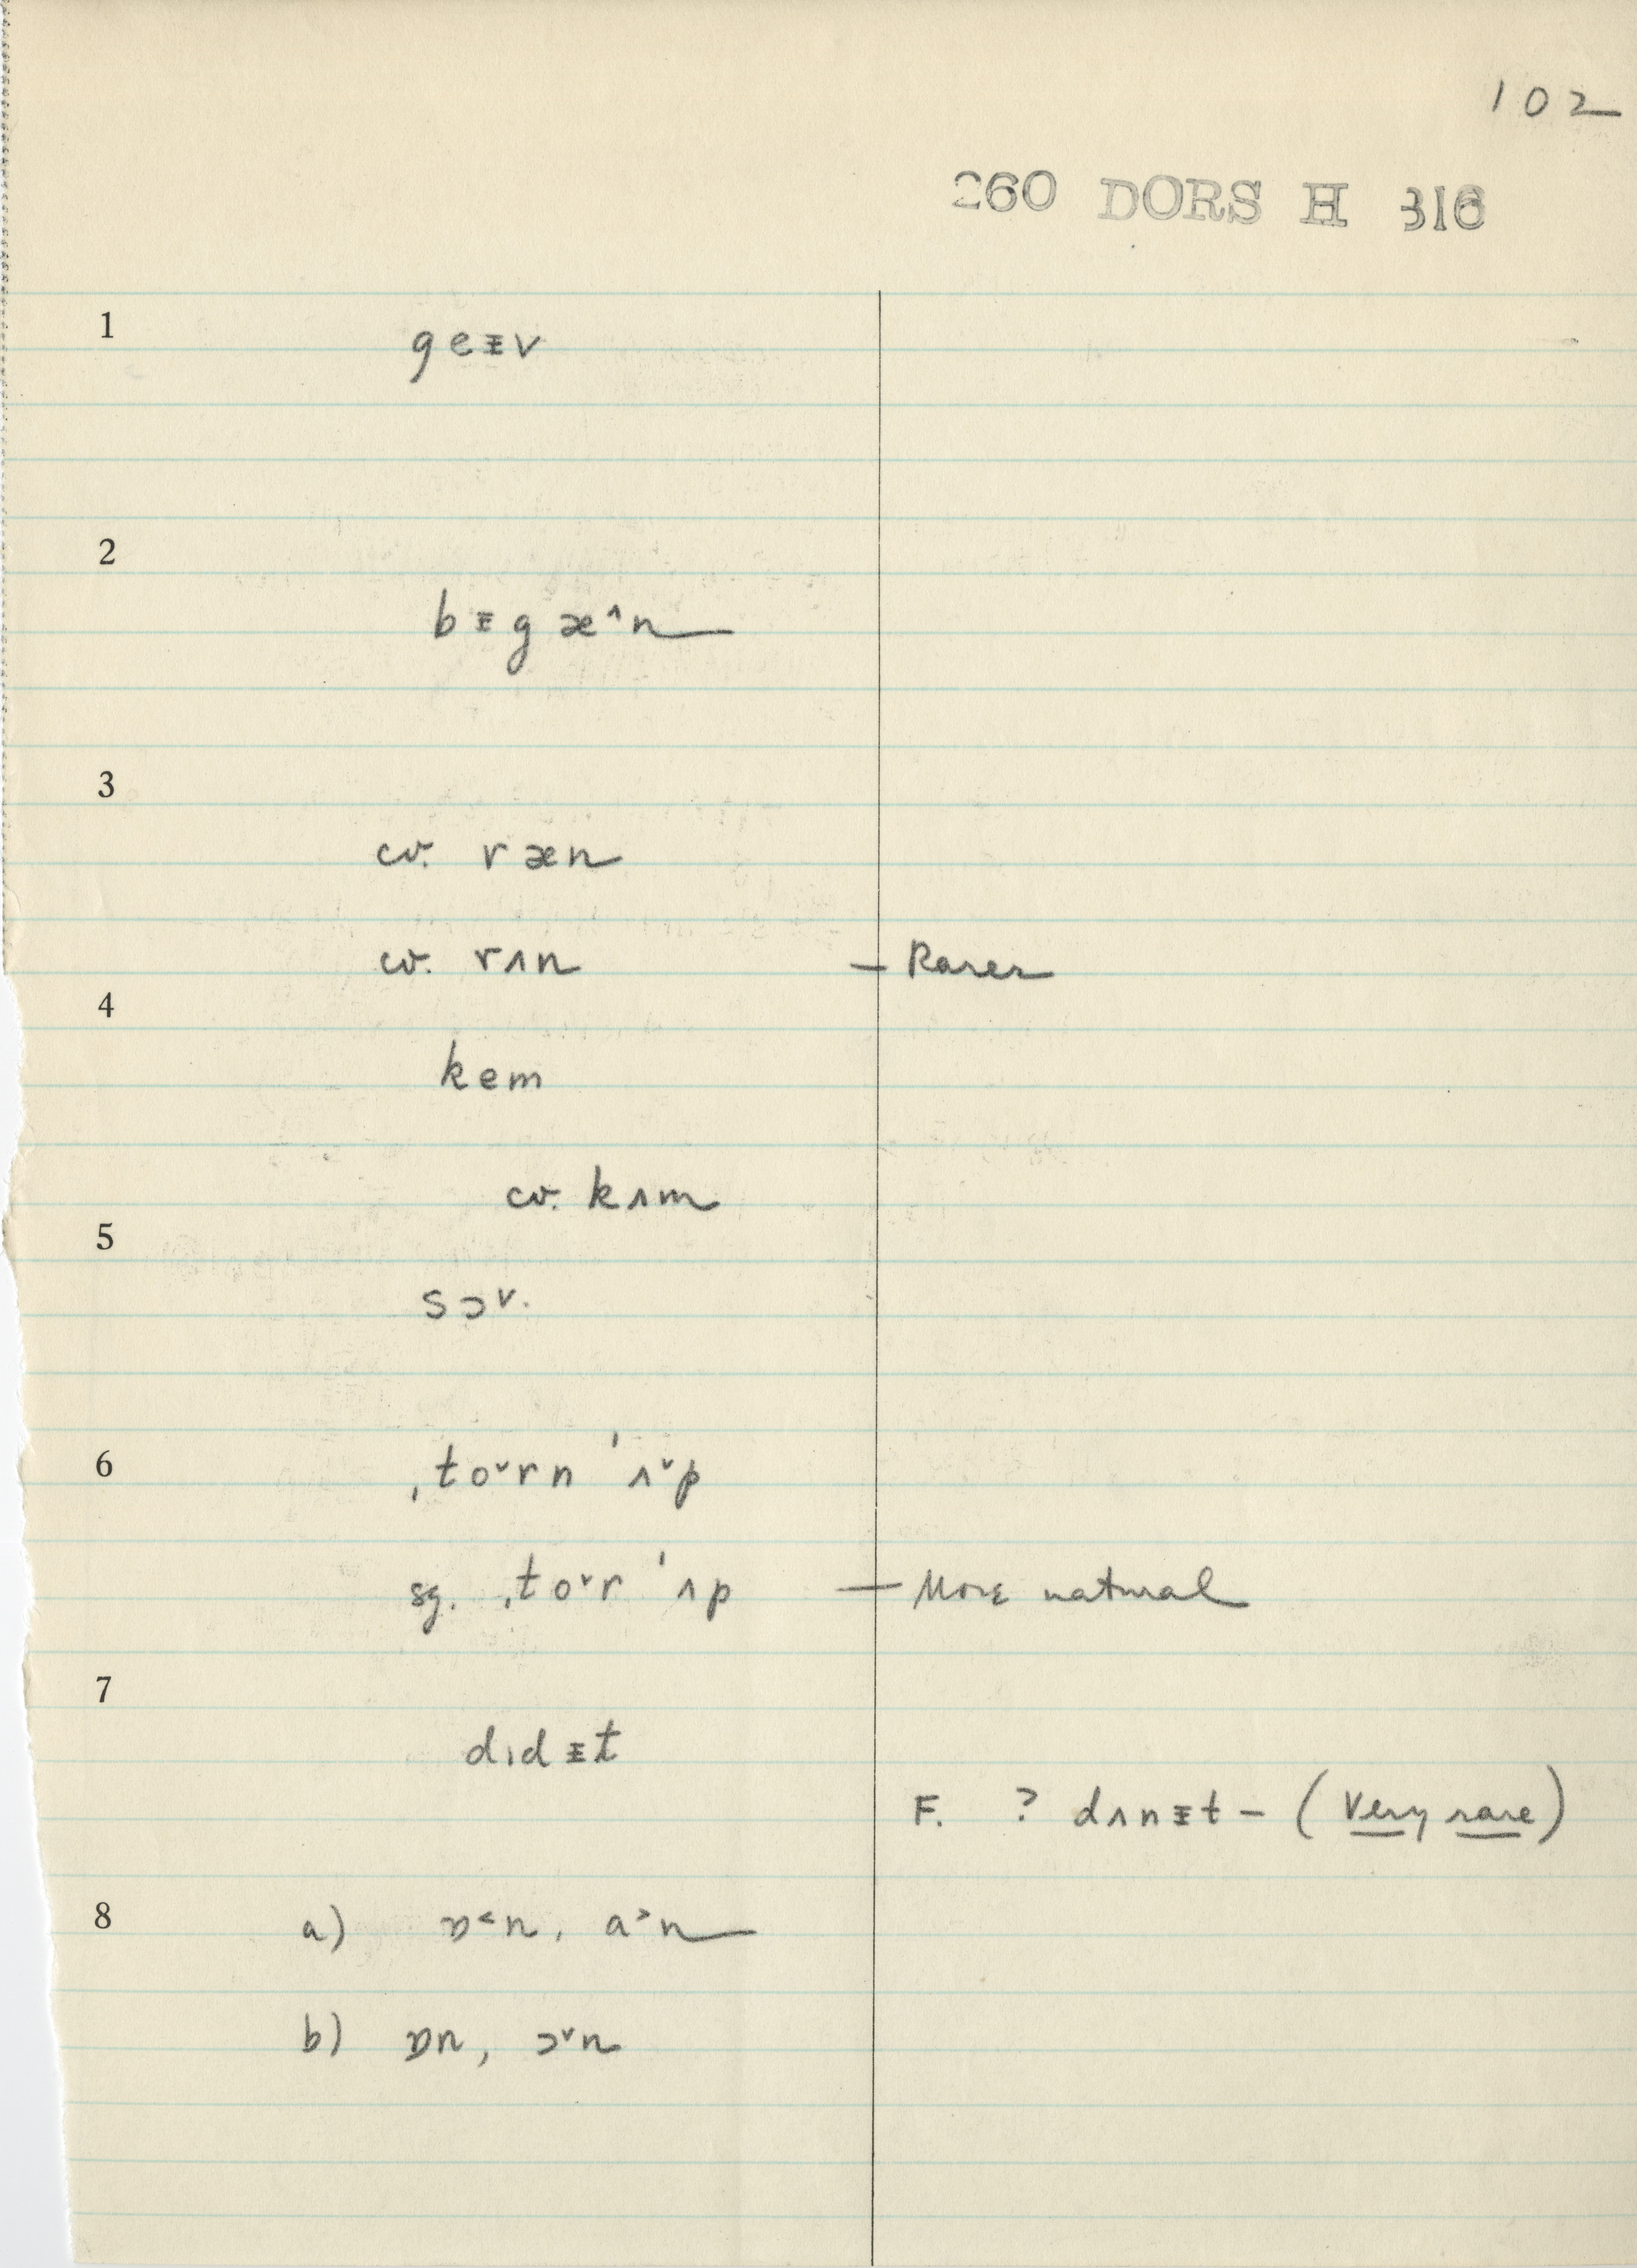 102
260 DORS H 316
1 geɪ̵v
2 bɪ̵gæ˄n
3
cv. ræn
cv. rʌn — Rarer
4
kem
cv. kʌm
5
sɔ˅.
6 ˌto˅rn ˈʌ˅p
sg. ˌto˅r ˈʌp — More natural
7
dɪdɪ̵t
F. ? dʌnɪ̵t – (Very rare)
8 a) ɒ˂n, a˃n
b) ɒn, ɔ˅n